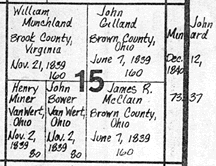 William
Munchland
Brook County,
Virginia
Nov. 21, 1839
160
John
Gilland
Brown County,
Ohio
June 7, 1839
160
John
Mun
ard
Dec. 12,
1840
73.37
15
Henry
Miner
Van Wert,
Ohio
Nov. 2,
1839
80
John
Bower
Van Wert,
Ohio
Nov. 2,
1839
80
James R.
McClain
Brown County,
Ohio
June 7, 1839
160